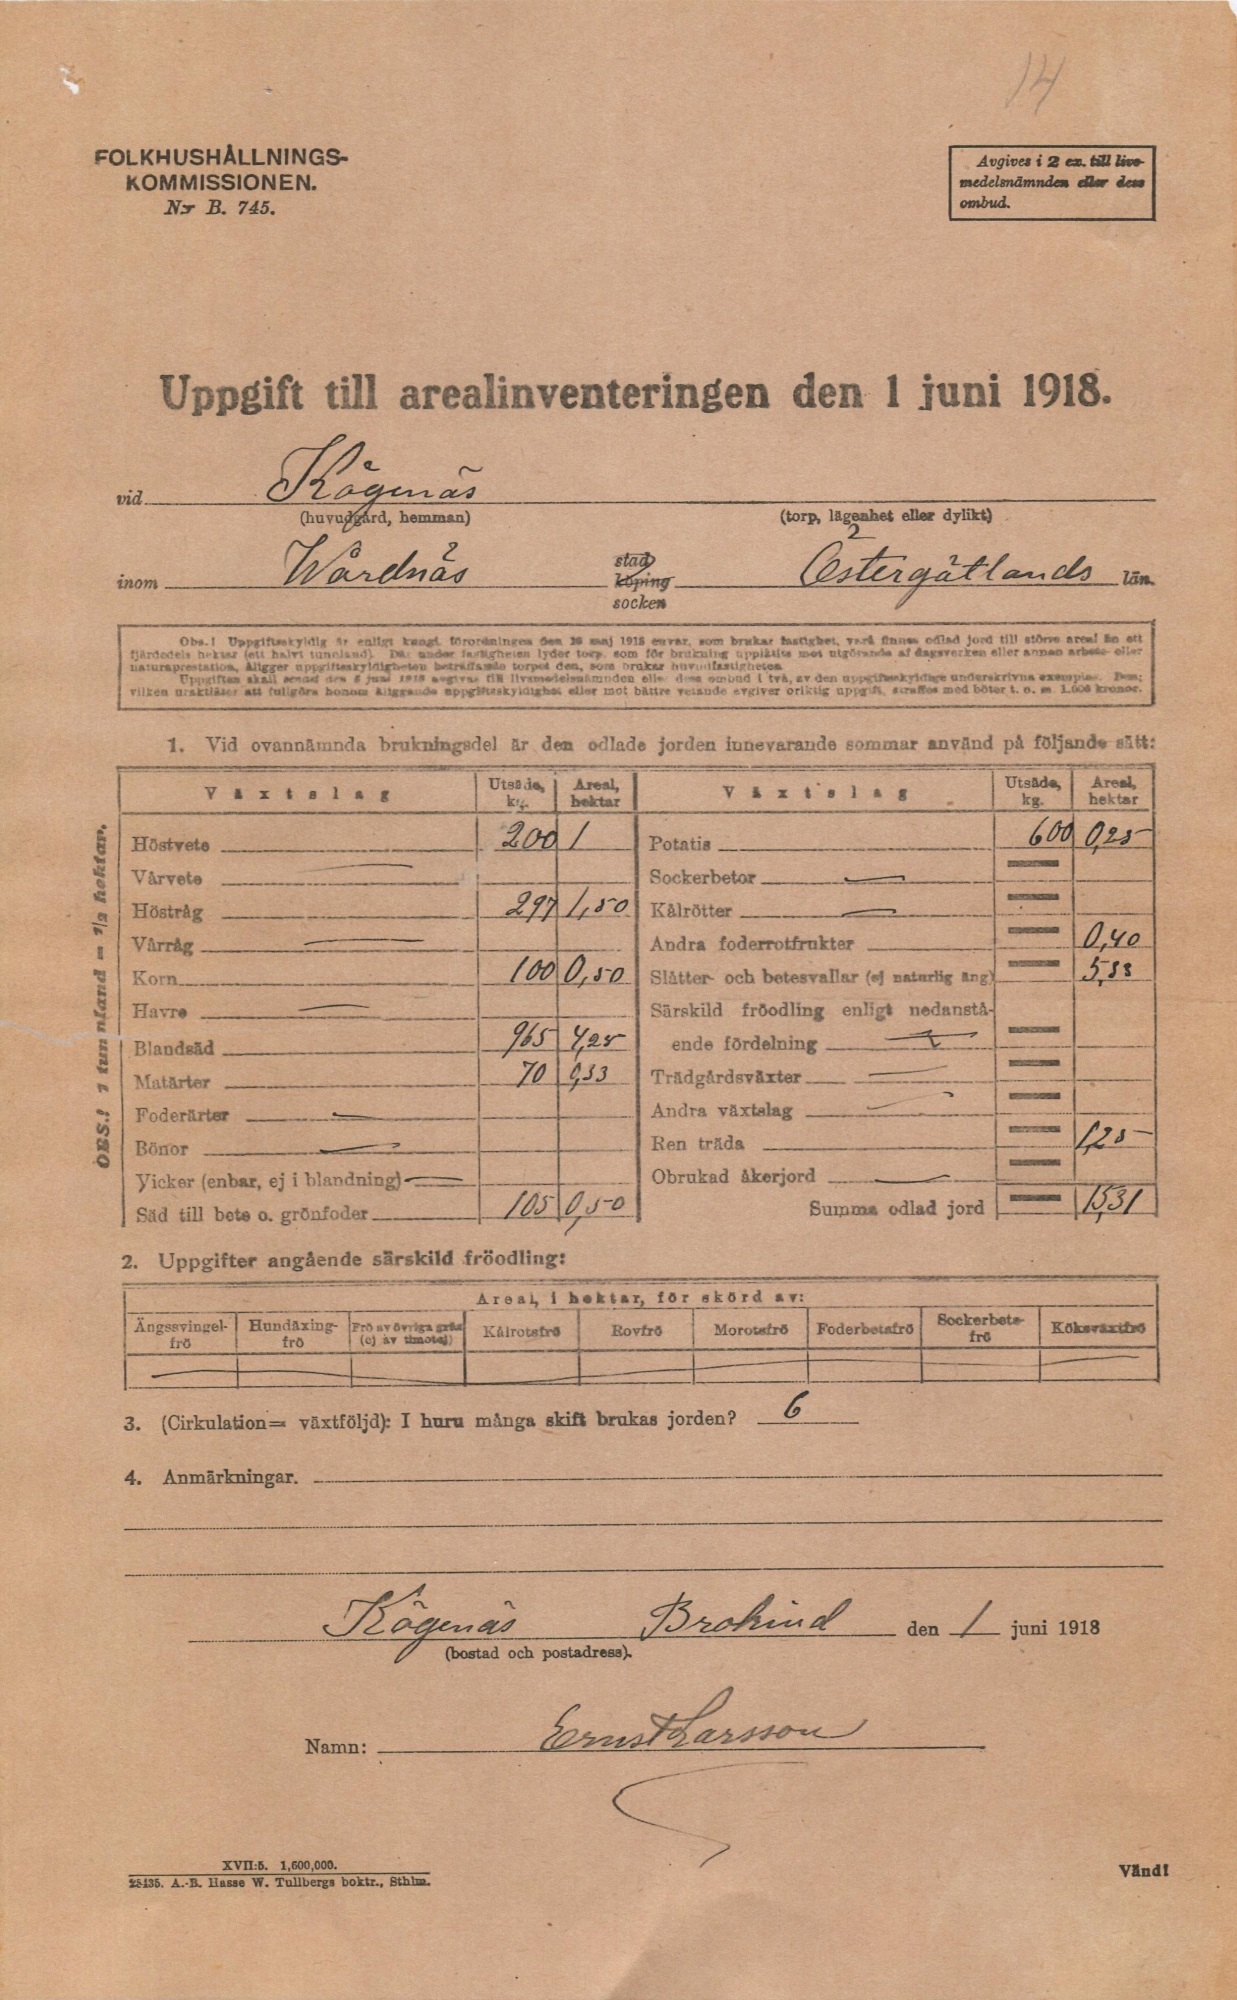 14
FOLKHUSHÅLLNINGS-
KOMMISSIONEN.
Nr B. 745.
Avgives i 2 ex. till livs-
medelsnämnden eller dess
ombud.
Uppgift till arealinventeringen den 1 juni 1918.
vid Kögenäs
(huvudgård, hemman) (torp, lägenhet eller dylikt)
inom Wårdnäs stad köping socken Östergötlands län.
Obs.! Uppgiftsskyldig är enligt kungl. förordningen den 26 maj 1918 envar, som brukar fastighet, vara finnes odlad jord till större areal än ett
fjärdedels hektar (ett halvt tunnland). Där under fastigheten lyder torp, som för brukning upplåtits mot utgörande af dagsverken eller annan arbets- eller
naturaprestation, åligger uppgiftsskyldigheten beträffande torpet den, som brukar huvudfastigheten.
Uppgiften skall senast den 8 juni 1918 avgivas till livsmedelsnämnden eller dess ombud i två, av den uppgiftsskyldige underskrivna exemplar. Den,
vilken uraktlåter att fullgöra honom åliggande uppgiftsskyldighet eller mot bättre vetande avgiver oriktig uppgift, straffas med böter t. o. m. 1.000 kronor.
1. Vid ovannämnda brukningsdel är den odlade jorden innevarande sommar använd på följande sätt:
OBS.! 1 tunnland = 1/2 hektar.
Växtslag Utsäde, kg. Areal, hektar Växtslag Utsäde, kg. Areal, hektar
Höstvete 200 1 Potatis 600 0,25
Vårvete — Sockerbetor —
Höstråg 297 1,50 Kålrötter —
Vårråg — Andra foderrotfrukter 0,40
Korn 100 0,50 Slåtter- och betesvallar (ej naturlig äng) 5,33
Havre — Särskild fröodling enligt nedanstå-
Blandsäd 965 4,25 ende fördelning —
Matärter 70 0,33 Trädgårdsväxter —
Foderärter — Andra växtslag —
Bönor — Ren träda 1,25
Vicker (enbar, ej i blandning) — Obrukad åkerjord —
Säd till bete o. grönfoder 105 0,50 Summa odlad jord 15,31
2. Uppgifter angående särskild fröodling:
Areal, i hektar, för skörd av:
Ängssvingel-frö Hundäxing-frö Frö av övriga gräs (ej av timotej) Kålrotsfrö Rovfrö Morotsfrö Foderbetsfrö Sockerbets-frö Köksväxtfrö
3. (Cirkulation = växtföljd): I huru många skift brukas jorden? 6
4. Anmärkningar.
Kögenäs Brokind den 1 juni 1918
(bostad och postadress).
Namn: Ernst Larsson
XVII:5. 1,600,000.
28435. A.-B. Hasse W. Tullbergs boktr., Sthlm.
Vänd!